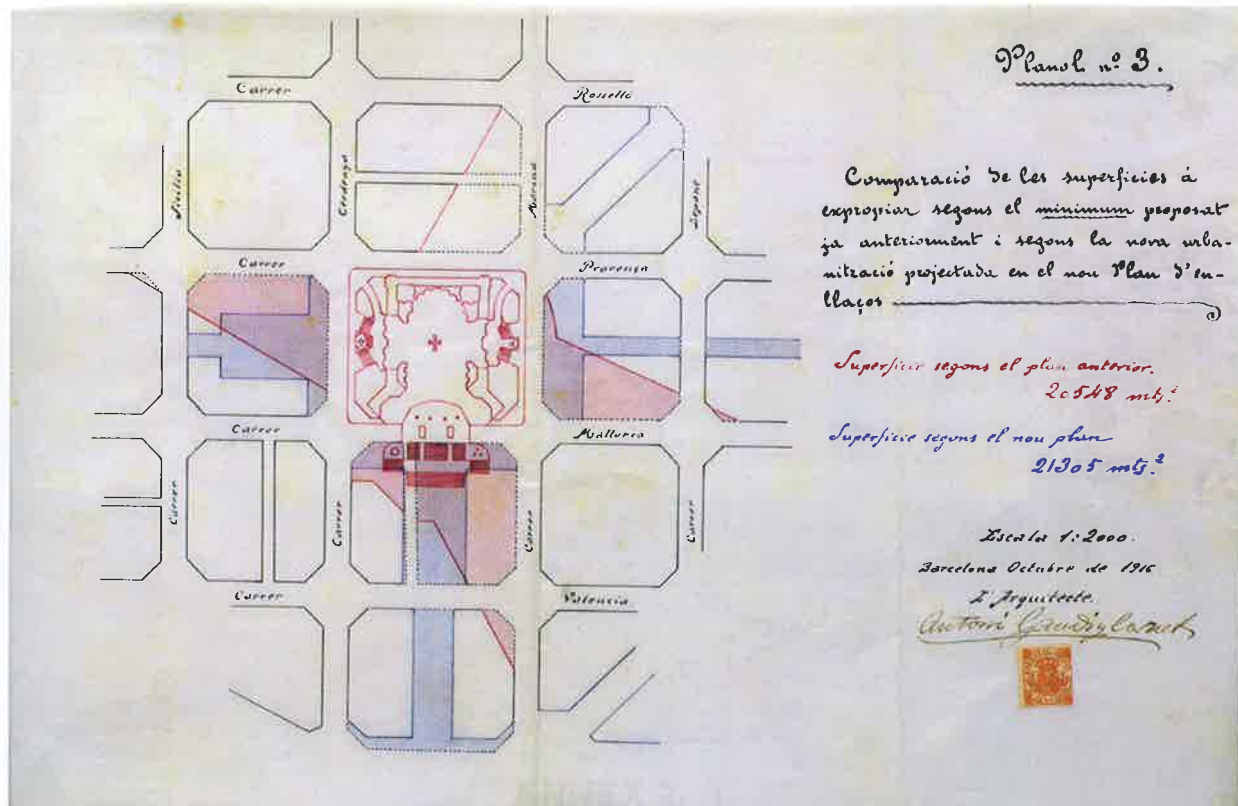 Planol nº 3.
Comparació de les superficies á
expropiar segons el minimum proposat
ja anteriorment i segons la nova urba-
nització projectada en el nou Plan d'en-
llaços
Superficie segons el plan anterior.
20548 mts.²
Superficie segons el nou plan
21305 mts.²
Escala 1:2000.
Barcelona Octubre de 1916
L'Arquitecte.
Antoni Gaudí y Cornet
Carrer Rosselló
Sicilia
Cerdenya
Marina
Lepant
Carrer Provensa
Carrer Mallorca
Carrer
Carrer
Carrer
Carrer
Carrer Valencia